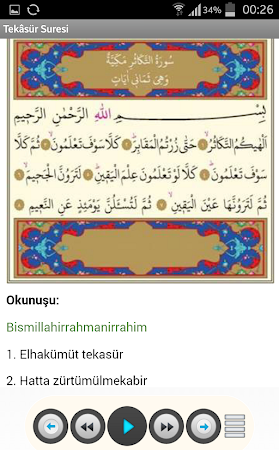 34% 00:26
Tekâsür Suresi
سُورَةُ التَّكَاثُرِ مَكِّيَّةٌ
وَهِيَ ثَمَانِي اٰيَاتٍ
بِسْــــمِ اللّٰهِ الرَّحْمٰنِ الرَّحِيمِ
اَلْهٰيكُمُ التَّكَاثُرُۙ ﴿١﴾ حَتّٰى زُرْتُمُ الْمَقَابِرَۜ ﴿٢﴾ كَلَّا سَوْفَ تَعْلَمُونَۙ ﴿٣﴾ ثُمَّ كَلَّا
سَوْفَ تَعْلَمُونَۜ ﴿٤﴾ كَلَّا لَوْ تَعْلَمُونَ عِلْمَ الْيَقِينِۜ ﴿٥﴾ لَتَرَوُنَّ الْجَحِيمَۙ ﴿٦﴾
ثُمَّ لَتَرَوُنَّهَا عَيْنَ الْيَقِينِۙ ﴿٧﴾ ثُمَّ لَتُسْـَٔلُنَّ يَوْمَئِذٍ عَنِ النَّعِيمِ ﴿٨﴾
Okunuşu:
Bismillahirrahmanirrahim
1. Elhakümüt tekasür
2. Hatta zürtümülmekabir